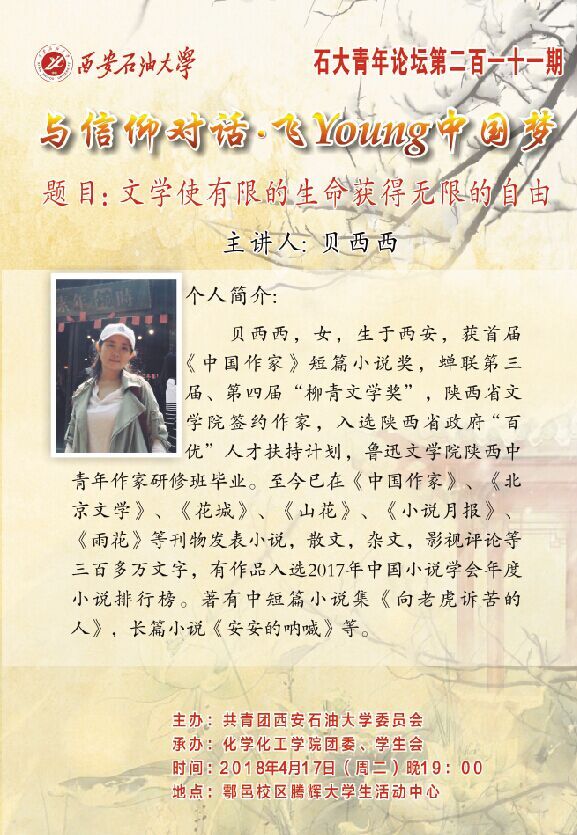 西安石油大学
石大青年论坛第二百一十一期
与信仰对话·飞Young中国梦
题目：文学使有限的生命获得无限的自由
主讲人：贝西西
个人简介：
贝西西，女，生于西安，获首届
《中国作家》短篇小说奖，蝉联第三
届、第四届“柳青文学奖”，陕西省文
学院签约作家，入选陕西省政府“百
优”人才扶持计划，鲁迅文学院陕西中
青年作家研修班毕业。至今已在《中国作家》、《北
京文学》、《花城》、《山花》、《小说月报》、
《雨花》等刊物发表小说，散文，杂文，影视评论等
三百多万文字，有作品入选2017年中国小说学会年度
小说排行榜。著有中短篇小说集《向老虎诉苦的
人》，长篇小说《安安的呐喊》等。
主办：共青团西安石油大学委员会
承办：化学化工学院团委、学生会
时间：2018年4月17日（周二）晚19：00
地点：鄠邑校区腾辉大学生活动中心